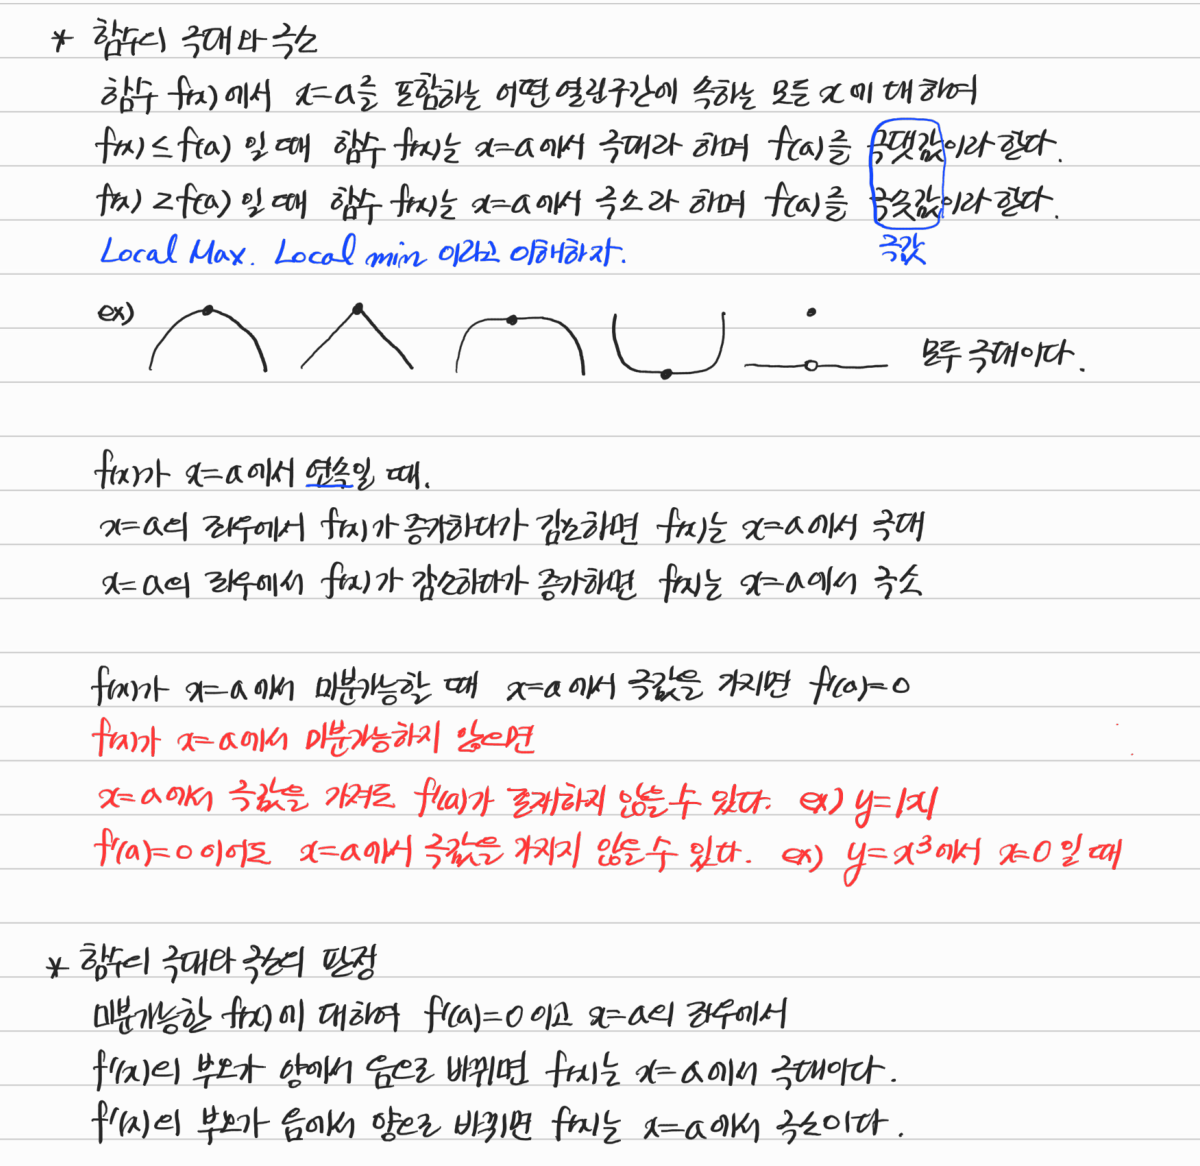 * 함수의 극대와 극소
함수 f(x)에서 x=a를 포함하는 어떤 열린구간에 속하는 모든 x에 대하여
f(x)≤f(a) 일 때 함수 f(x)는 x=a에서 극대라 하며 f(a)를 극댓값이라 한다.
f(x)≥f(a) 일 때 함수 f(x)는 x=a에서 극소라 하며 f(a)를 극솟값이라 한다.
Local Max. Local min 이라고 이해하자. 극값
ex) 모두 극대이다.
f(x)가 x=a에서 연속일 때.
x=a의 좌우에서 f(x)가 증가하다가 감소하면 f(x)는 x=a에서 극대
x=a의 좌우에서 f(x)가 감소하다가 증가하면 f(x)는 x=a에서 극소
f(x)가 x=a에서 미분가능할 때 x=a에서 극값을 가지면 f'(a)=0
f(x)가 x=a에서 미분가능하지 않으면
x=a에서 극값을 가져도 f'(a)가 존재하지 않을 수 있다. ex) y=|x|
f'(a)=0 이어도 x=a에서 극값을 가지지 않을 수 있다. ex) y=x³에서 x=0 일 때
* 함수의 극대와 극소의 판정
미분가능한 f(x)에 대하여 f'(a)=0 이고 x=a의 좌우에서
f'(x)의 부호가 양에서 음으로 바뀌면 f(x)는 x=a에서 극대이다.
f'(x)의 부호가 음에서 양으로 바뀌면 f(x)는 x=a에서 극소이다.